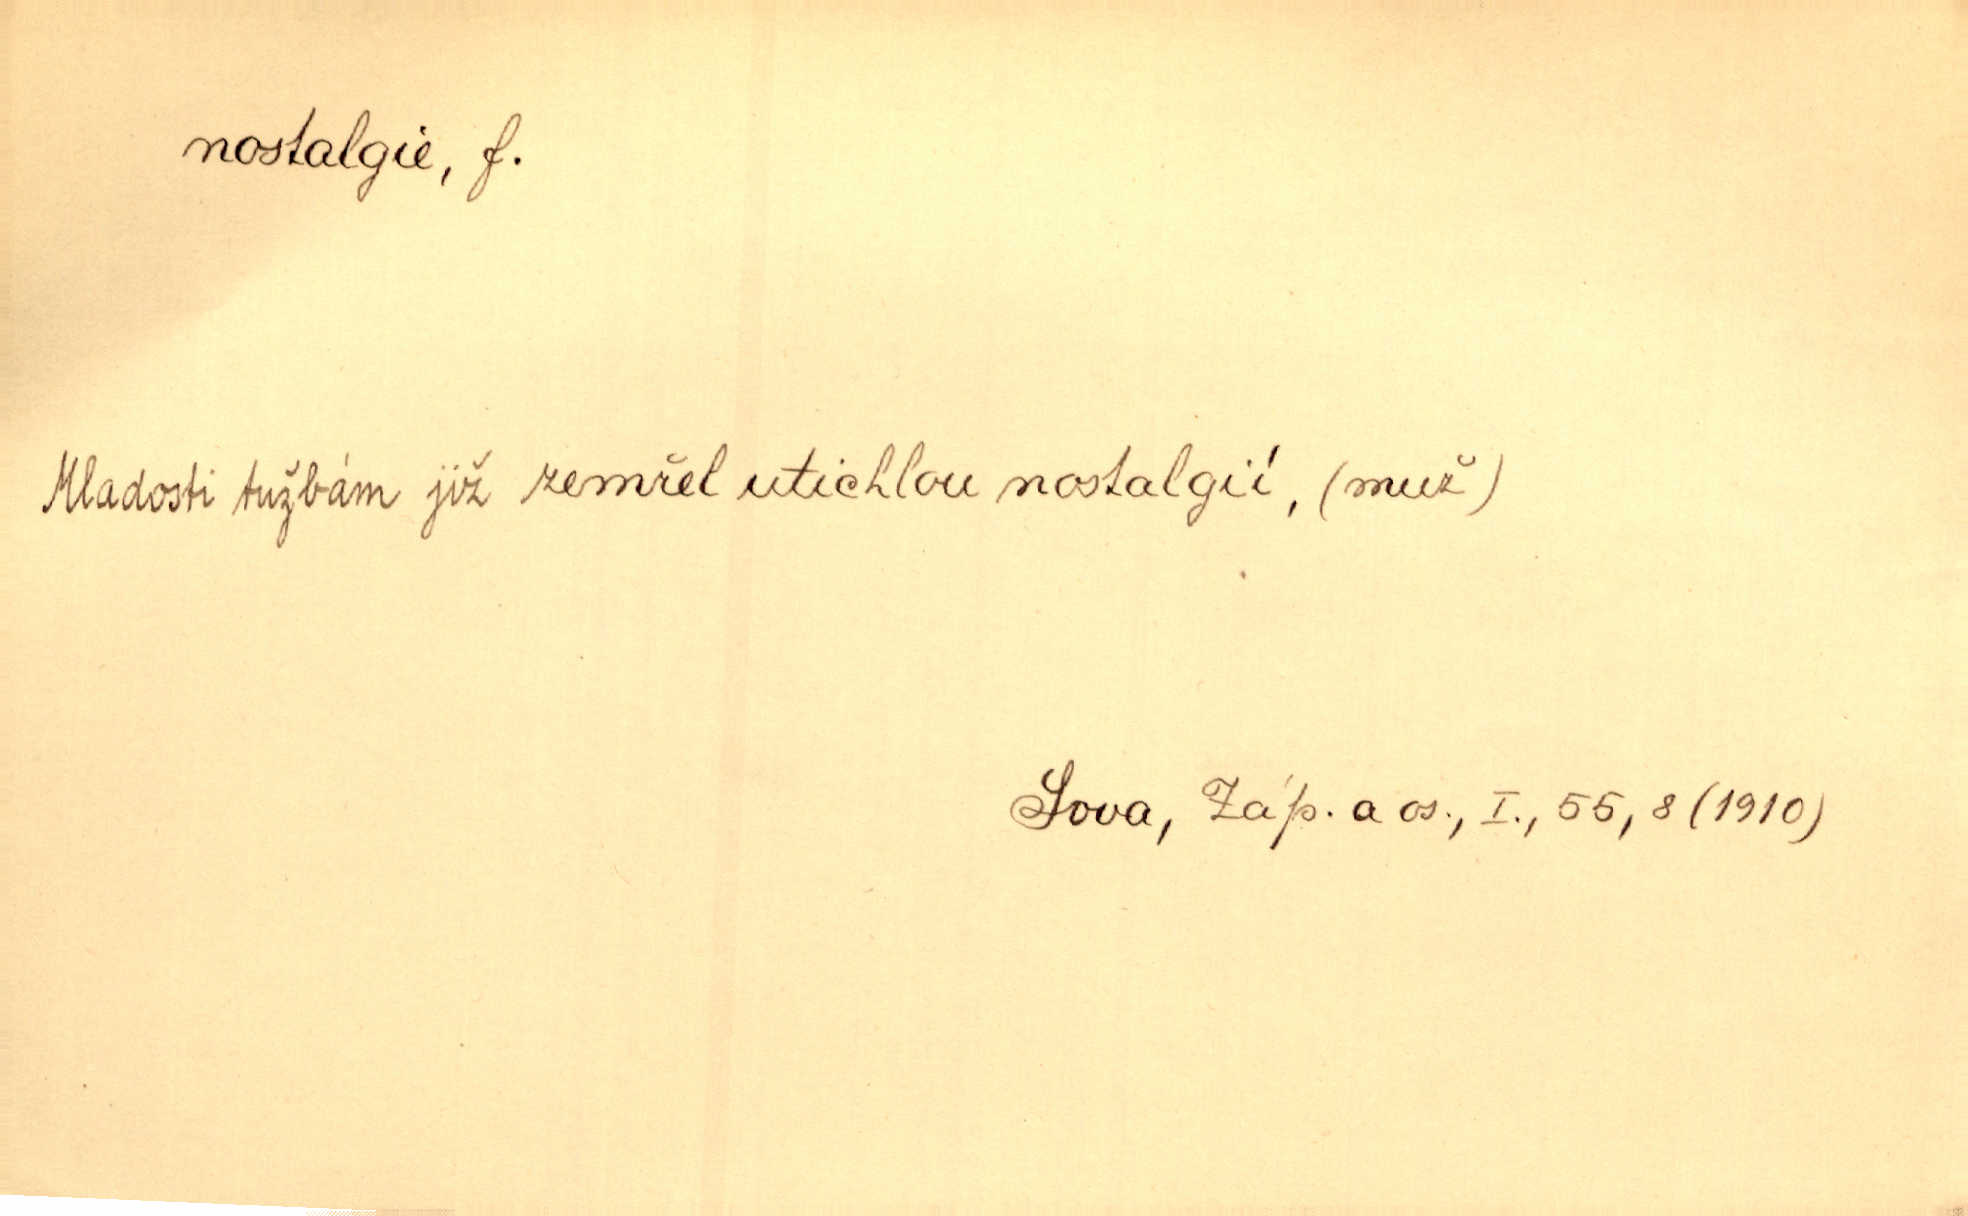 nostalgie, f.
Mladosti tužbám již zemřel utichlou nostalgií, (muž)
Sova, Záp. a os., I., 55, 8 (1910)